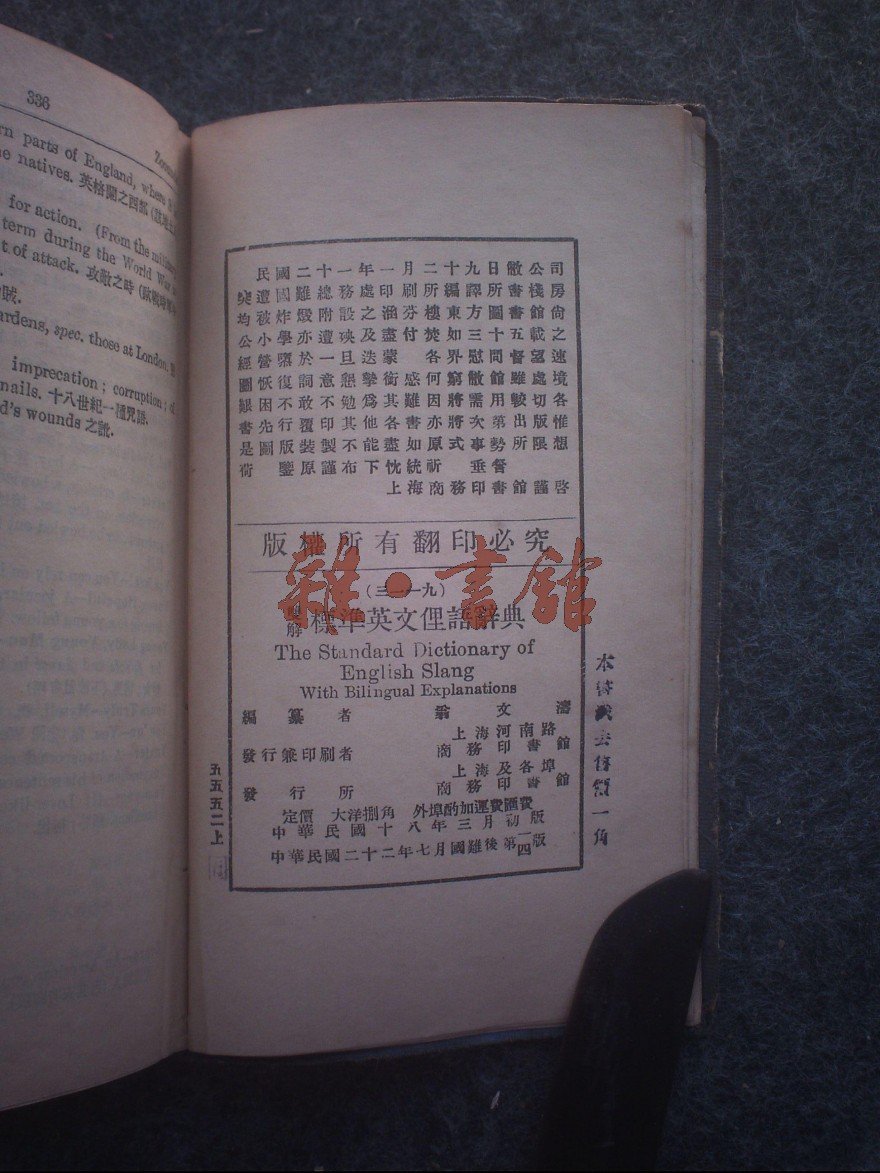 336
rn parts of England, where
e natives. 英格蘭之西部
for action. (From the
term during the World War
t of attack. 攻敵之時
賊.
ardens, spec. those at London.
imprecation; corruption;
nails. 十八世紀一種咒語.
d's wounds 之訛.
民國二十一年一月二十九日敝公司
突遭國難總務處印刷所編譯所書棧房
均被炸燬附設之涵芬樓東方圖書館尚
公小學亦遭殃及盡付焚如三十五載之
經營隳於一旦迭蒙各界慰問督望速
圖恢復詞意懇摯銜感何窮敝館雖處境
艱困不敢不勉爲其難因將需用較切各
書先行覆印其他各書亦將次第出版惟
是圖版裝製不能盡如原式事勢所限想
荷鑒原謹布下忱統祈垂詧
上海商務印書館謹啓
版權所有翻印必究
標準英文俚語辭典
The Standard Dictionary of
English Slang
With Bilingual Explanations
編纂者 翁文濤
發行兼印刷者 上海河南路 商務印書館
發行所 上海及各埠 商務印書館
定價 大洋捌角 外埠酌加運費匯費
中華民國十八年三月初版
中華民國二十二年七月國難後第一四版
五五五二上
雜·書館